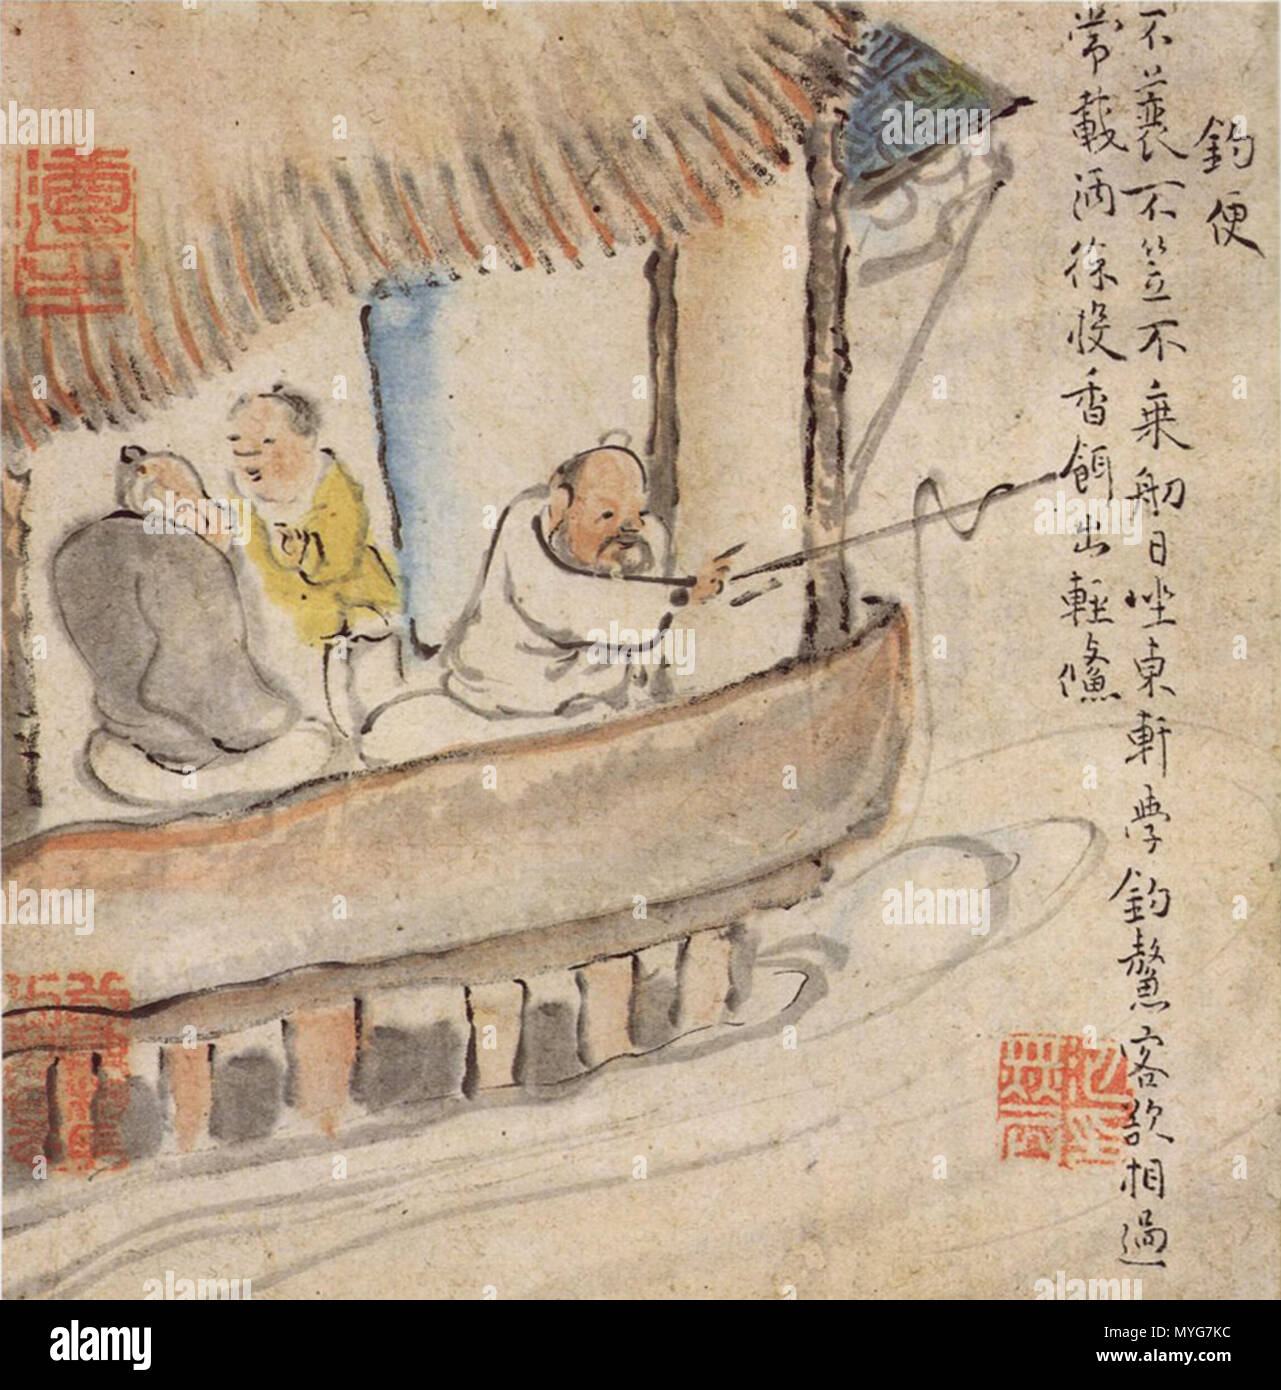 釣便
不蓑不笠不乗舠日坐東軒学釣鰲客欲相過
常載酒徐投香餌出輕鯈
alamy
Image ID: MYG7KC
www.alamy.com